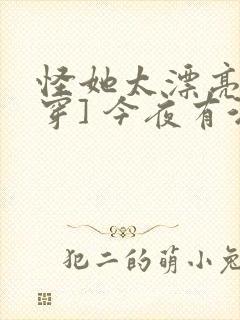 怪她太漂亮
穿] 今夜有
犯二的萌小兔